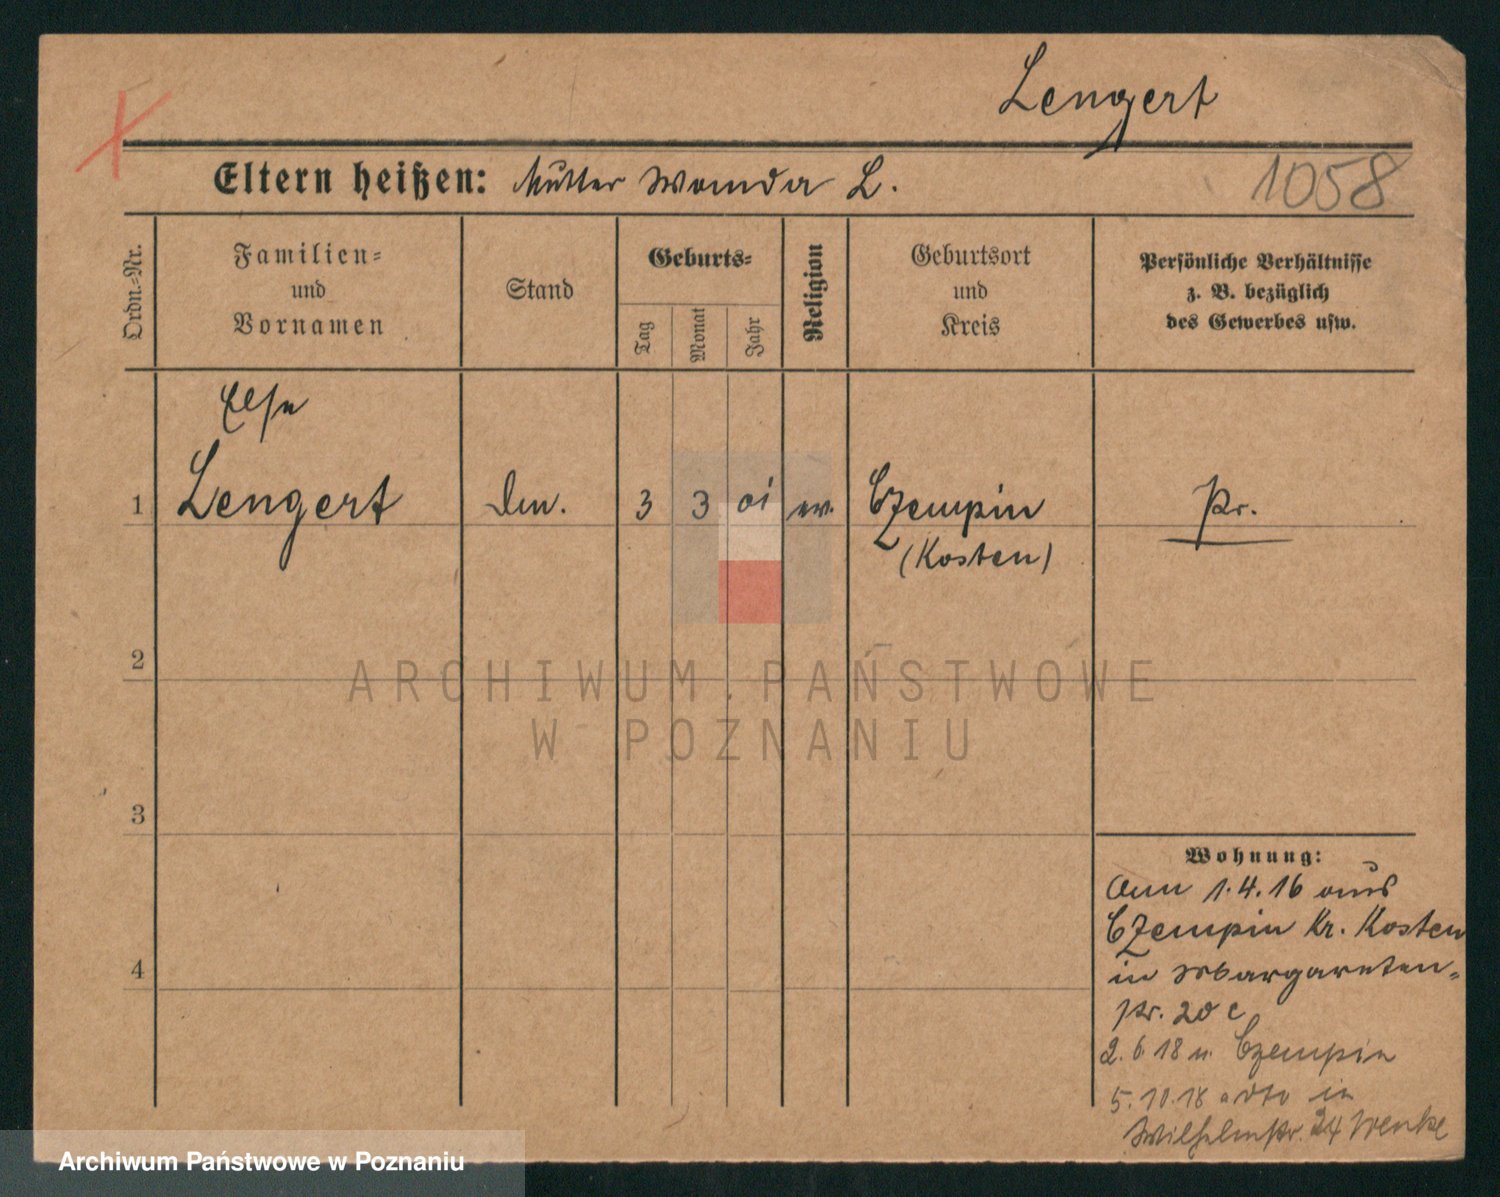 Lengert
Eltern heißen: Mutter Wanda L.
1058
Ordn.=Nr.
Familien=
und
Vornamen
Stand
Geburts=
Tag
Monat
Jahr
Religion
Geburtsort
und
Kreis
Persönliche Verhältnisse
z. B. bezüglich
des Gewerbes usw.
Else
1 Lengert 3 3 01 ev. Czempin Pr.
(Kosten)
2
3
4
ARCHIWUM PAŃSTWOWE
W POZNANIU
Wohnung:
1.4.16 aus
Czempin Kr. Kosten
in Margareten=
str. 20 c
2.6.18 n. Czempin
5.10.18 in
Wilhelmstr. 24
Archiwum Państwowe w Poznaniu